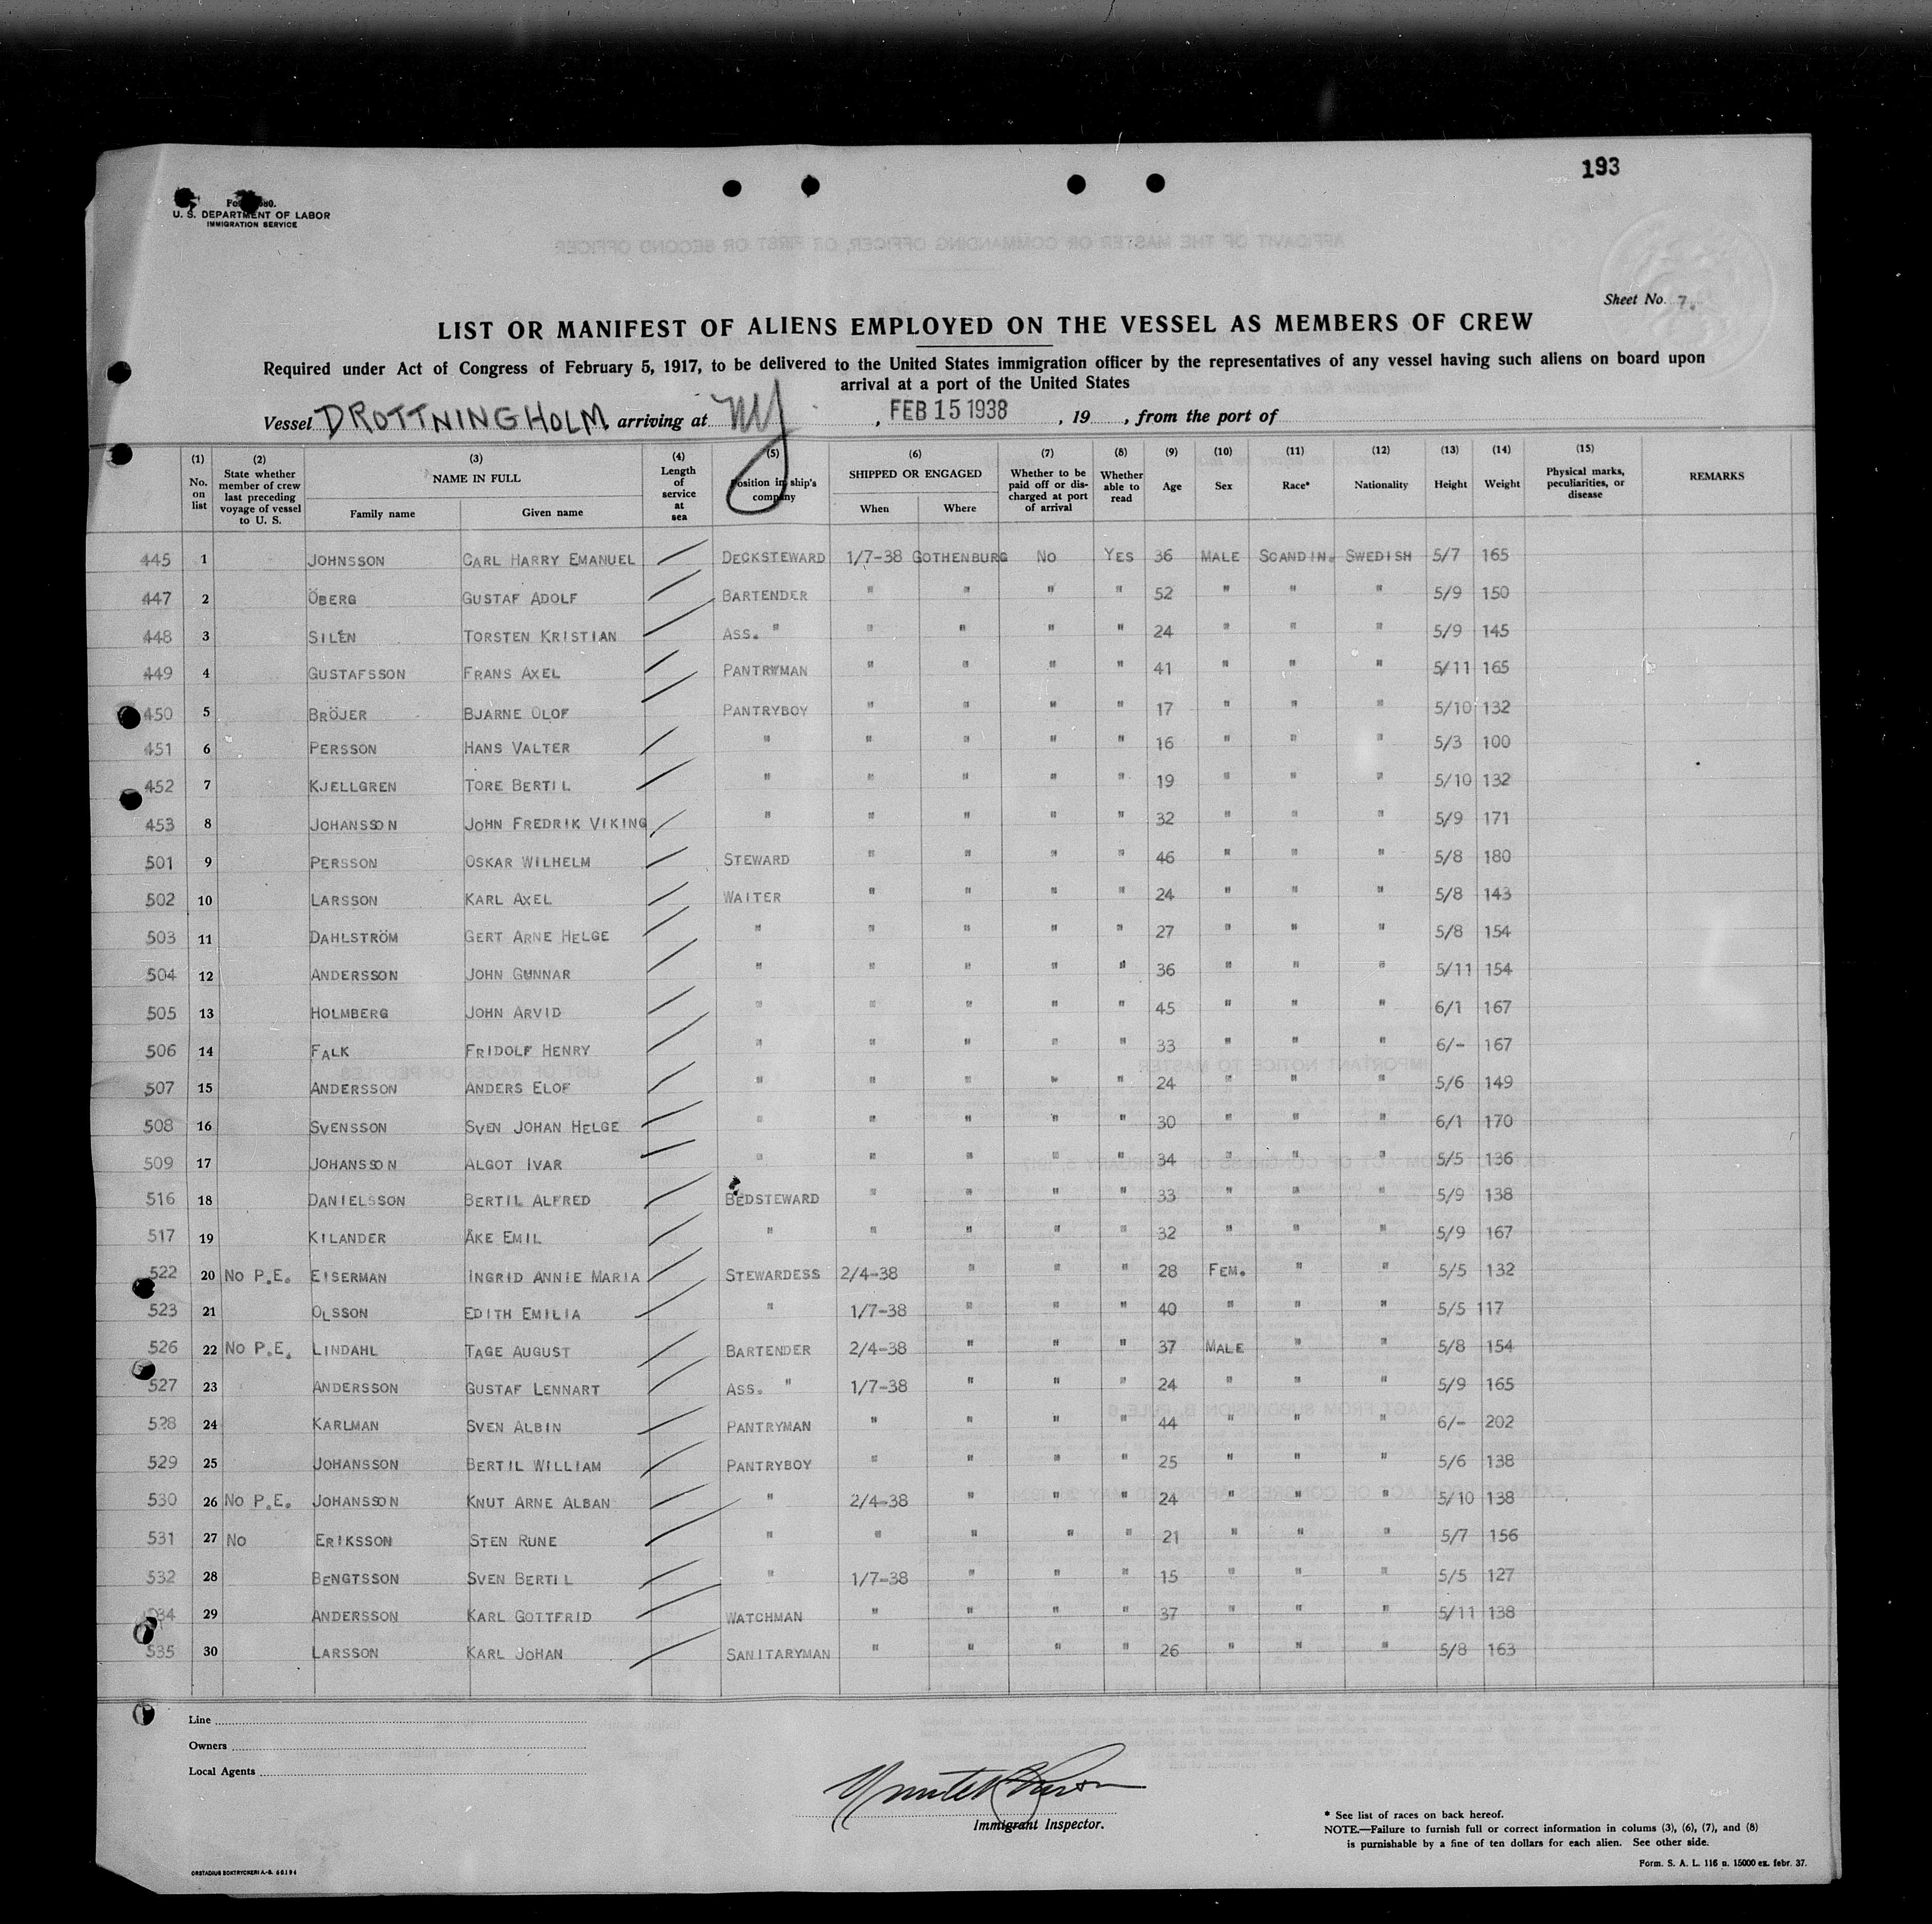 193
U. S. DEPARTMENT OF LABOR
IMMIGRATION SERVICE
Sheet No. 7.
LIST OR MANIFEST OF ALIENS EMPLOYED ON THE VESSEL AS MEMBERS OF CREW
Required under Act of Congress of February 5, 1917, to be delivered to the United States immigration officer by the representatives of any vessel having such aliens on board upon
arrival at a port of the United States
Vessel DROTTNINGHOLM arriving at NY , FEB 15 1938 , 19 , from the port of
(1) No. on list (2) State whether member of crew last preceding voyage of vessel to U. S. (3) NAME IN FULL Family name Given name (4) Length of service at sea (5) Position in ship's company (6) SHIPPED OR ENGAGED When Where (7) Whether to be paid off or discharged at port of arrival (8) Whether able to read (9) Age (10) Sex (11) Race* (12) Nationality (13) Height (14) Weight (15) Physical marks, peculiarities, or disease REMARKS
445 1 JOHNSSON CARL HARRY EMANUEL DECKSTEWARD 1/7-38 GOTHENBURG NO YES 36 MALE SCANDIN. SWEDISH 5/7 165
447 2 ÖBERG GUSTAF ADOLF BARTENDER " " " " 52 " " " 5/9 150
448 3 SILÉN TORSTEN KRISTIAN ASS. " " " " " 24 " " " 5/9 145
449 4 GUSTAFSSON FRANS AXEL PANTRYMAN " " " " 41 " " " 5/11 165
450 5 BRÖJER BJARNE OLOF PANTRYBOY " " " " 17 " " " 5/10 132
451 6 PERSSON HANS VALTER " " " " " 16 " " " 5/3 100
452 7 KJELLGREN TORE BERTIL " " " " " 19 " " " 5/10 132
453 8 JOHANSSON JOHN FREDRIK VIKING " " " " " 32 " " " 5/9 171
501 9 PERSSON OSKAR WILHELM STEWARD " " " " 46 " " " 5/8 180
502 10 LARSSON KARL AXEL WAITER " " " " 24 " " " 5/8 143
503 11 DAHLSTRÖM GERT ARNE HELGE " " " " " 27 " " " 5/8 154
504 12 ANDERSSON JOHN GUNNAR " " " " " 36 " " " 5/11 154
505 13 HOLMBERG JOHN ARVID " " " " " 45 " " " 6/1 167
506 14 FALK FRIDOLF HENRY " " " " " 33 " " " 6/- 167
507 15 ANDERSSON ANDERS ELOF " " " " " 24 " " " 5/6 149
508 16 SVENSSON SVEN JOHAN HELGE " " " " " 30 " " " 6/1 170
509 17 JOHANSSON ALGOT IVAR " " " " " 34 " " " 5/5 136
516 18 DANIELSSON BERTIL ALFRED BEDSTEWARD " " " " 33 " " " 5/9 138
517 19 KILANDER ÅKE EMIL " " " " " 32 " " " 5/9 167
522 20 NO P.E. EISERMAN INGRID ANNIE MARIA STEWARDESS 2/4-38 " " " 28 FEM. " " 5/5 132
523 21 OLSSON EDITH EMILIA " 1/7-38 " " " 40 " " " 5/5 117
526 22 NO P.E. LINDAHL TAGE AUGUST BARTENDER 2/4-38 " " " 37 MALE " " 5/8 154
527 23 ANDERSSON GUSTAF LENNART ASS. " 1/7-38 " " " 24 " " " 5/9 165
528 24 KARLMAN SVEN ALBIN PANTRYMAN " " " " 44 " " " 6/- 202
529 25 JOHANSSON BERTIL WILLIAM PANTRYBOY " " " " 25 " " " 5/6 138
530 26 NO P.E. JOHANSSON KNUT ARNE ALBAN " 2/4-38 " " " 24 " " " 5/10 138
531 27 NO ERIKSSON STEN RUNE " " " " " 21 " " " 5/7 156
532 28 BENGTSSON SVEN BERTIL " 1/7-38 " " " 15 " " " 5/5 127
29 ANDERSSON KARL GOTTFRID WATCHMAN " " " " 37 " " " 5/11 138
535 30 LARSSON KARL JOHAN SANITARYMAN " " " " 26 " " " 5/8 163
Line
Owners
Local Agents
Immigrant Inspector.
* See list of races on back hereof.
NOTE.—Failure to furnish full or correct information in colums (3), (6), (7), and (8)
is purnishable by a fine of ten dollars for each alien. See other side.
ORSTADIUS BOKTRYCKERI A.-B. 66194
Form. S. A. L. 116 n. 15000 ex. febr. 37.